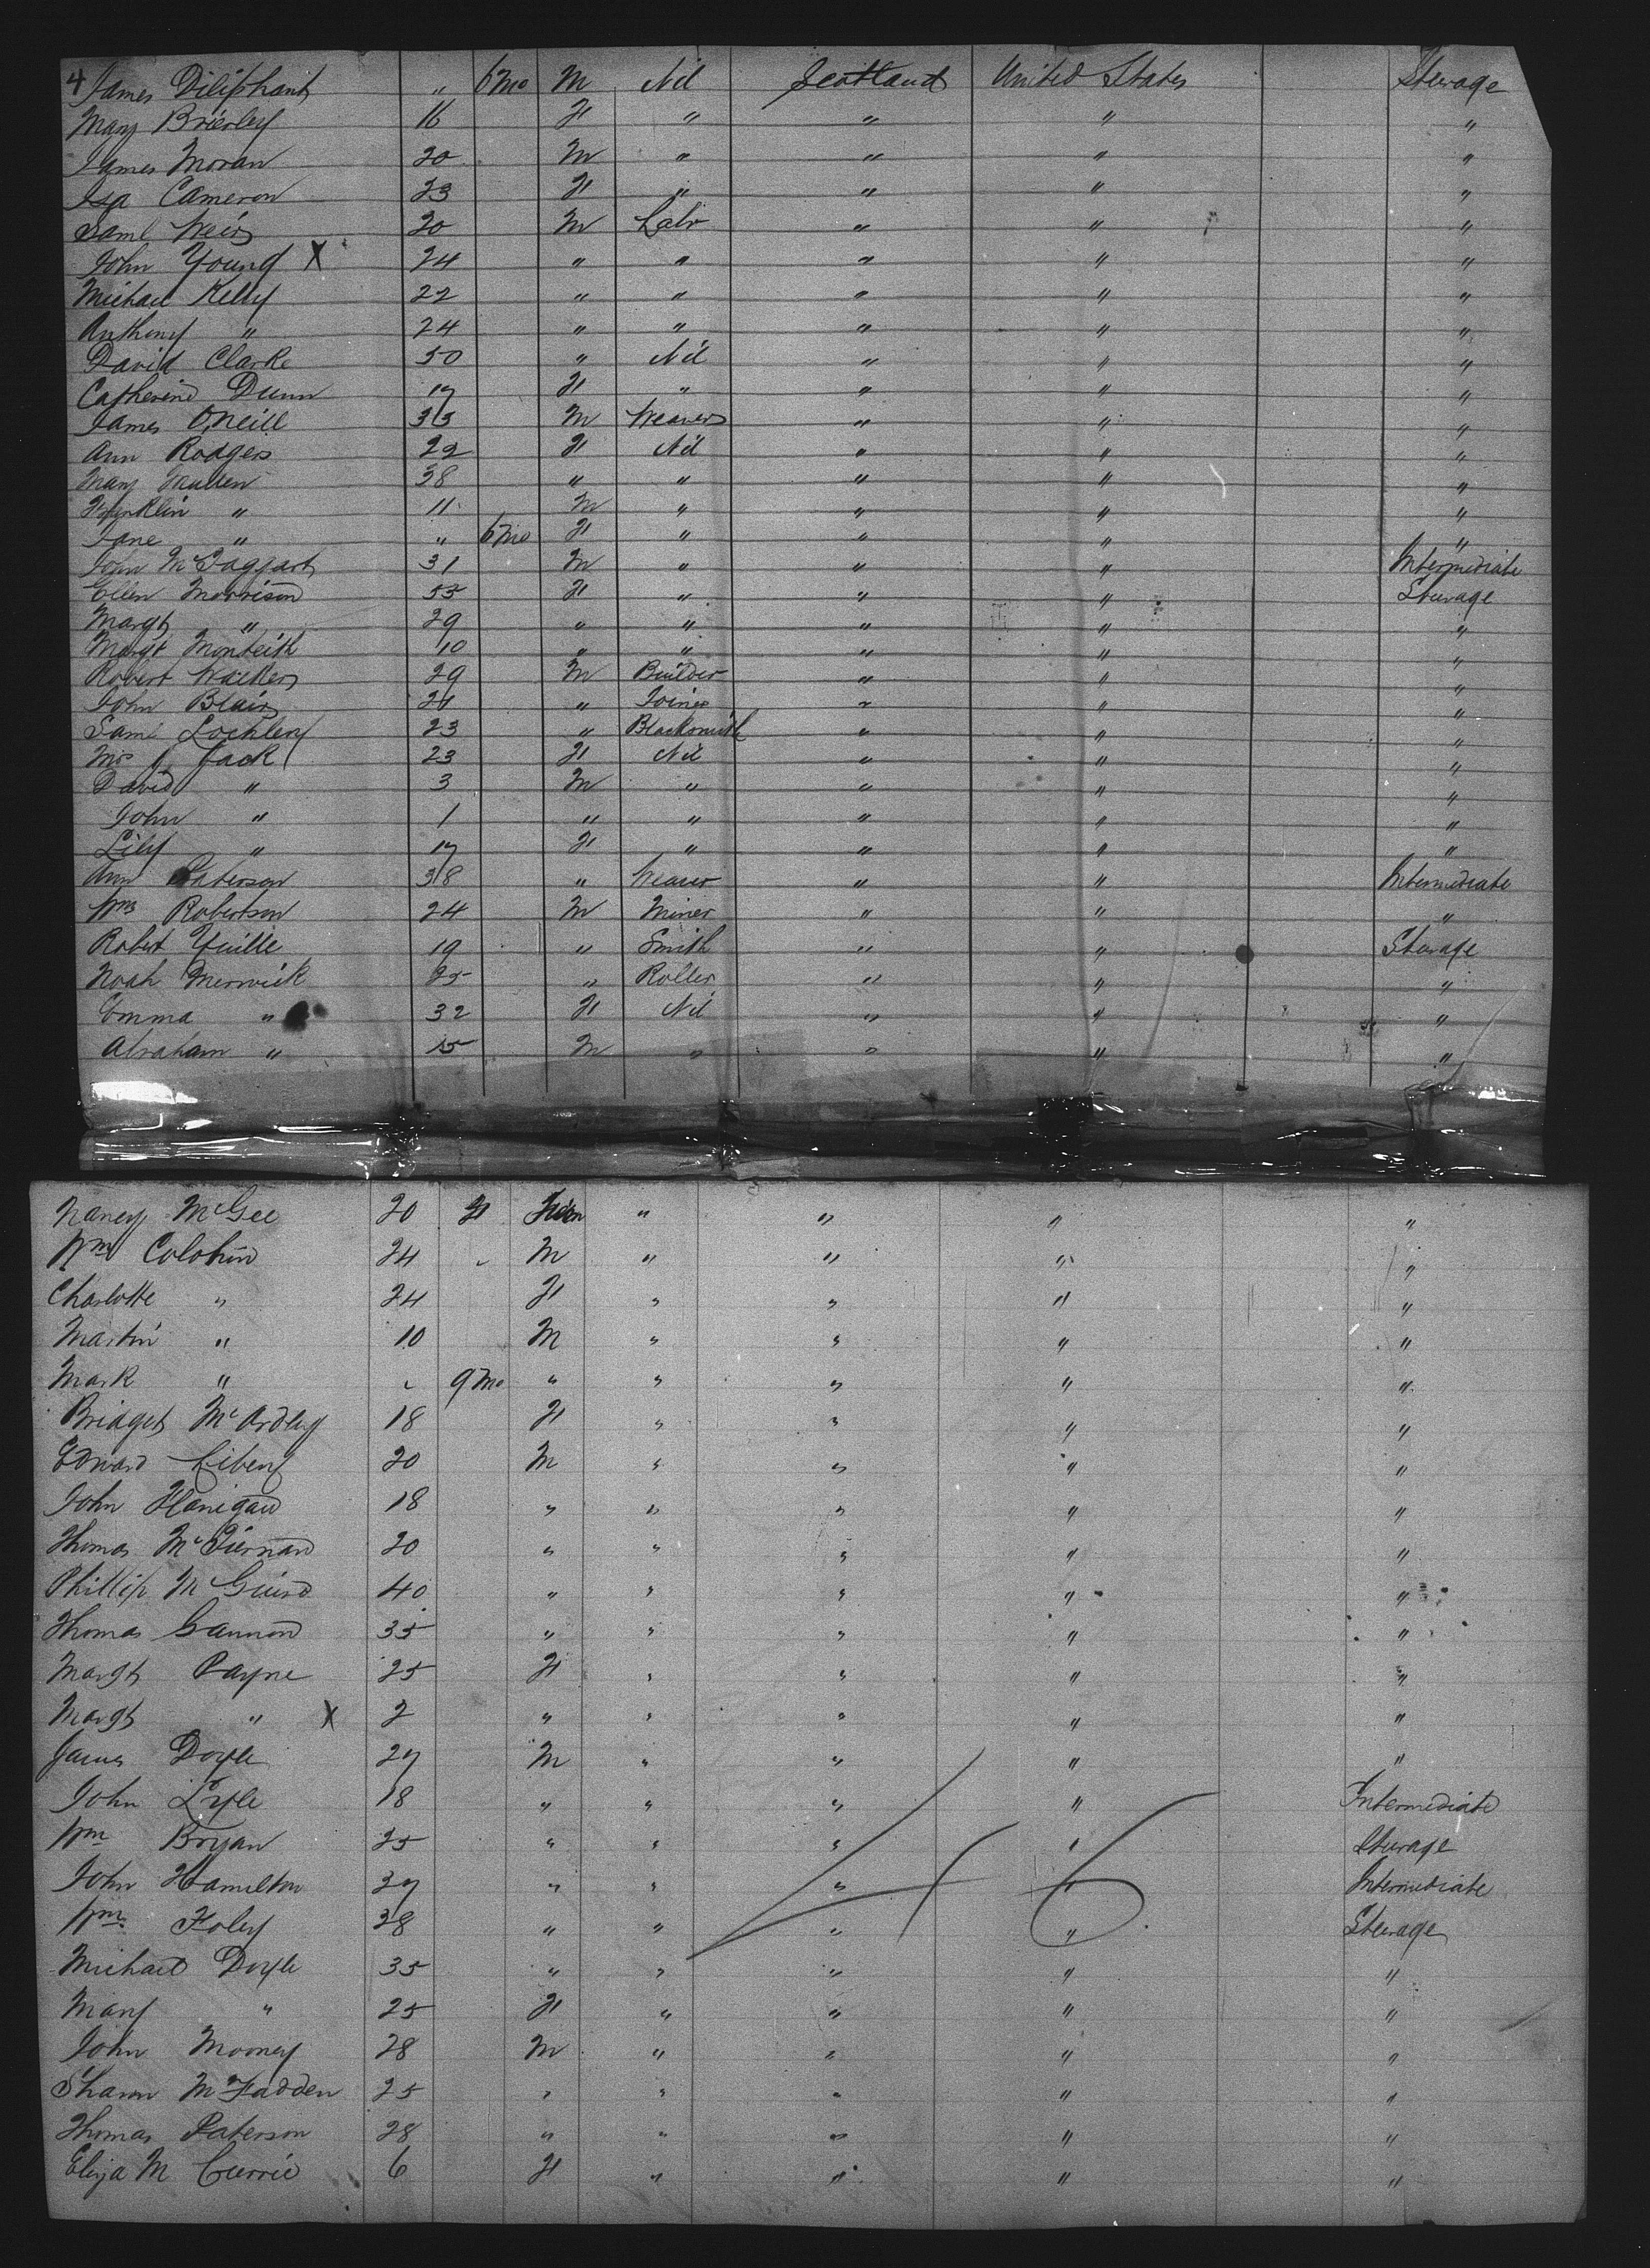 4 James Oliphant " 6 mo M Nil Scotland United States Steerage
Mary Brierley 16 F " " " "
James Moran 20 M " " " "
Isa Cameron 23 F " " " "
Saml Weir 20 M Labr " " "
John Young X 24 " " " " "
Michael Kelly 22 " " " " "
Anthony " 24 " " " " "
David Clarke 50 " Nil " " "
Catherine Dunn 17 F " " " "
James O'Neill 33 M Weaver " " "
Ann Rodgers 22 F Nil " " "
Mary 38 " " " " "
Franklin " 11 M " " " "
Jane " " 6 mo F " " " "
John McTaggart 31 M " " " Intermediate
Ellen Morrison 55 F " " " Steerage
Margt " 29 " " " " "
Margt Monteith 10 " " " " "
Robert Walker 29 M Builder " " "
John Blair 21 " Joiner " " "
Saml Lochley 23 " Blacksmith " " "
Mrs Jack 23 F Nil " " "
David " 3 M " " " "
John " 1 " " " " "
Lily " 17 F " " " "
Ann Paterson 38 " Weaver " " Intermediate
Wm Robertson 24 M Miner " " "
Robert Yuille 19 " Smith " " Steerage
Noah Merwick 25 " Roller " " "
Emma " 32 F Nil " " "
Abraham " 15 M " " " "
Nancy McGee 20 F " " " "
Wm Colohin 24 " M " " " "
Charlotte " 24 F " " " "
Martin " 10 M " " " "
Mark " " 9 Mo " " " " "
Bridget McArdley 18 F " " " "
Edward Libeny 20 M " " " "
John Flanigan 18 " " " " "
Thomas McTiernan 20 " " " " "
Phillip McGuire 40 " " " " "
Thomas Gannon 35 " " " " "
Margt Payne 25 F " " " "
Margt " X 2 " " " " "
James Doyle 27 M " " " "
John Lyle 18 " " " " Intermediate
Wm Bryan 25 " " " " Steerage
John Hamilton 37 " " " " Intermediate
Wm Foley 38 " " " " Steerage
Michael Doyle 35 " " " " "
Mary " 25 F " " " "
John Mooney 28 M " " " "
McFadden 25 " " " " "
Thomas Paterson 28 " " " " "
Eliza M Currie 6 F " " " "